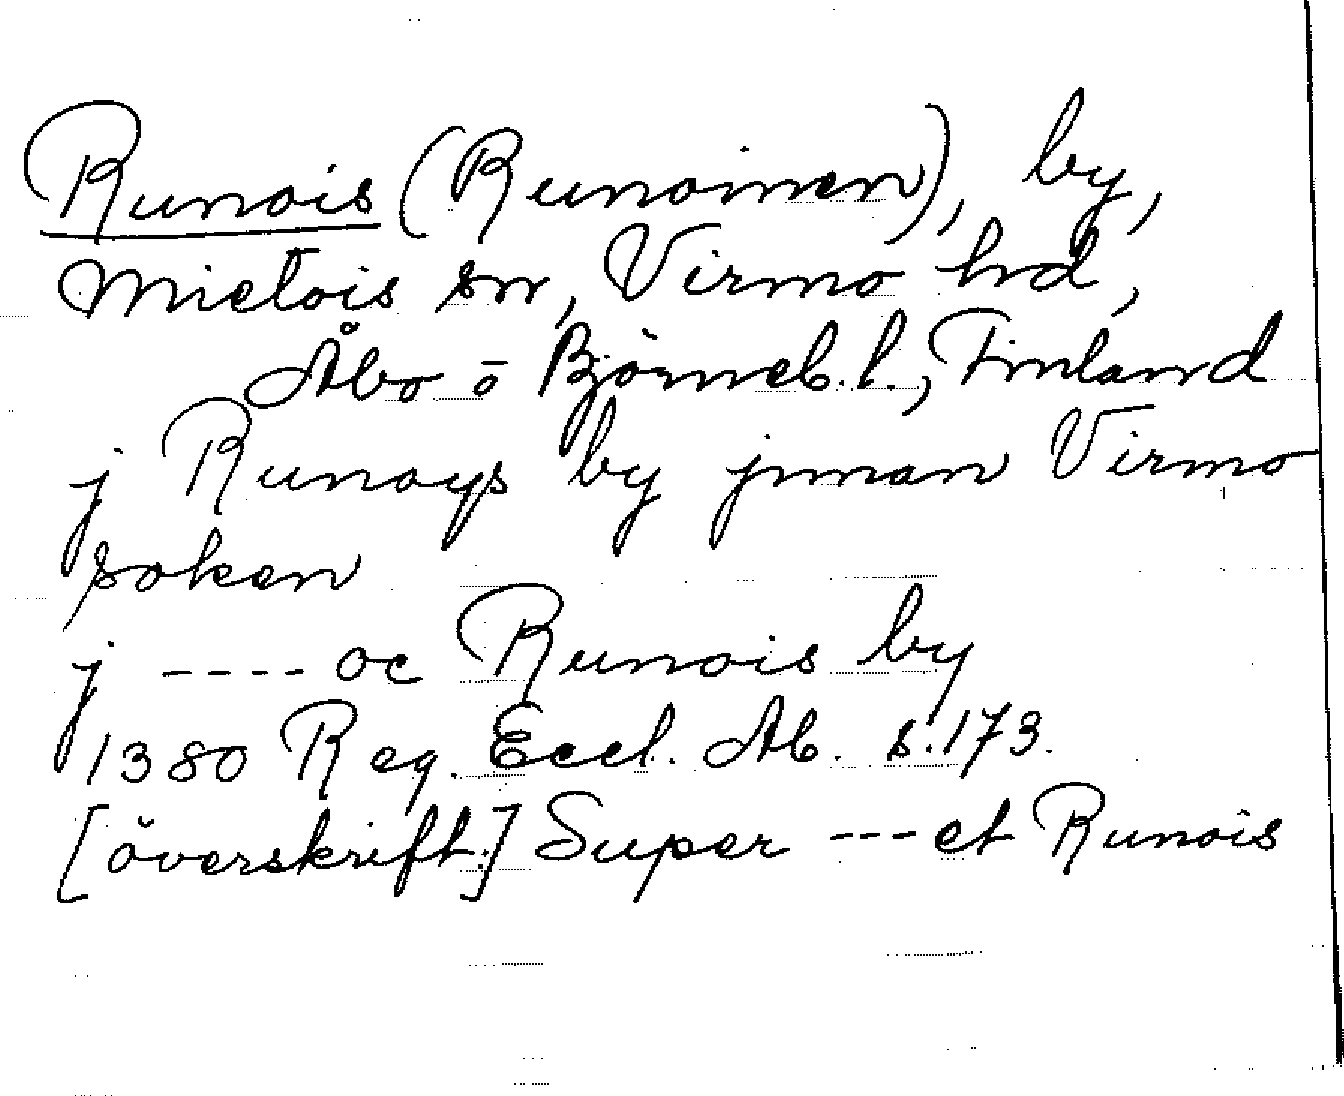 Runois (Runoinen), by,
Mietois sn, Virmo hd,
Åbo o Björneb. l., Finland
j Runoys by jnnan Virmo
soken
j ---- oc Runois by
1380 Reg. Eccl. Ab. s. 173.
[överskrift:] Super --- et Runois